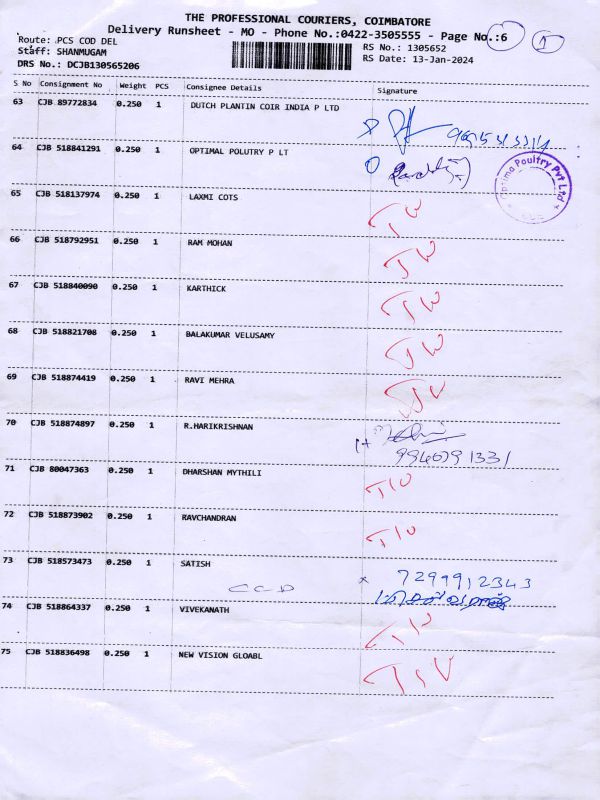 THE PROFESSIONAL COURIERS, COIMBATORE
Delivery Runsheet - MO - Phone No.:0422-3505555 - Page No.:6 1
Route: .PCS COD DEL RS No.: 1305652
Staff: SHANMUGAM RS Date: 13-Jan-2024
DRS No.: DCJB130565206
S No Consignment No Weight PCS Consignee Details Signature
63 CJB 89772834 0.250 1 DUTCH PLANTIN COIR INDIA P LTD
64 CJB 518841291 0.250 1 OPTIMAL POLUTRY P LT
Optima Poultry Pvt Ltd
65 CJB 518137974 0.250 1 LAXMI COTS
66 CJB 518792951 0.250 1 RAM MOHAN
67 CJB 518840090 0.250 1 KARTHICK
68 CJB 518821708 0.250 1 BALAKUMAR VELUSAMY
69 CJB 518874419 0.250 1 RAVI MEHRA
70 CJB 518874897 0.250 1 R.HARIKRISHNAN
71 CJB 80047363 0.250 1 DHARSHAN MYTHILI
72 CJB 518873902 0.250 1 RAVCHANDRAN
73 CJB 518573473 0.250 1 SATISH 7299912343
74 CJB 518864337 0.250 1 VIVEKANATH
75 CJB 518836498 0.250 1 NEW VISION GLOABL